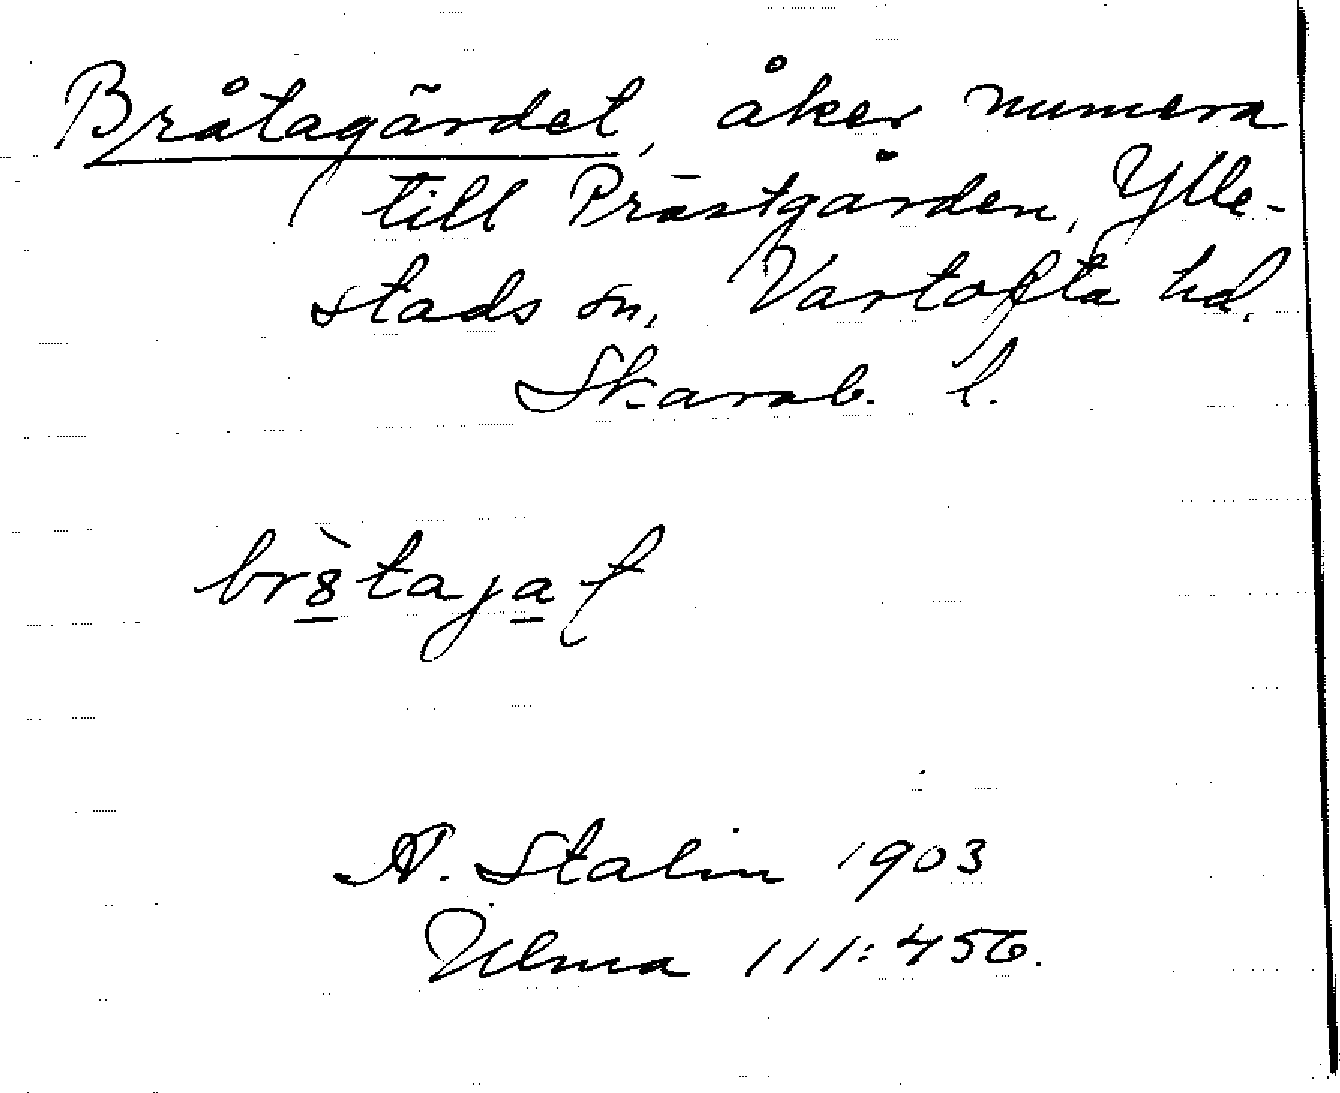 Bråtagärdet, åker numera
till Prästgården, Ylle-
stads sn, Vartofta hd.
Skarab. l.
A. Stalin 1903
Ulma 111:456.